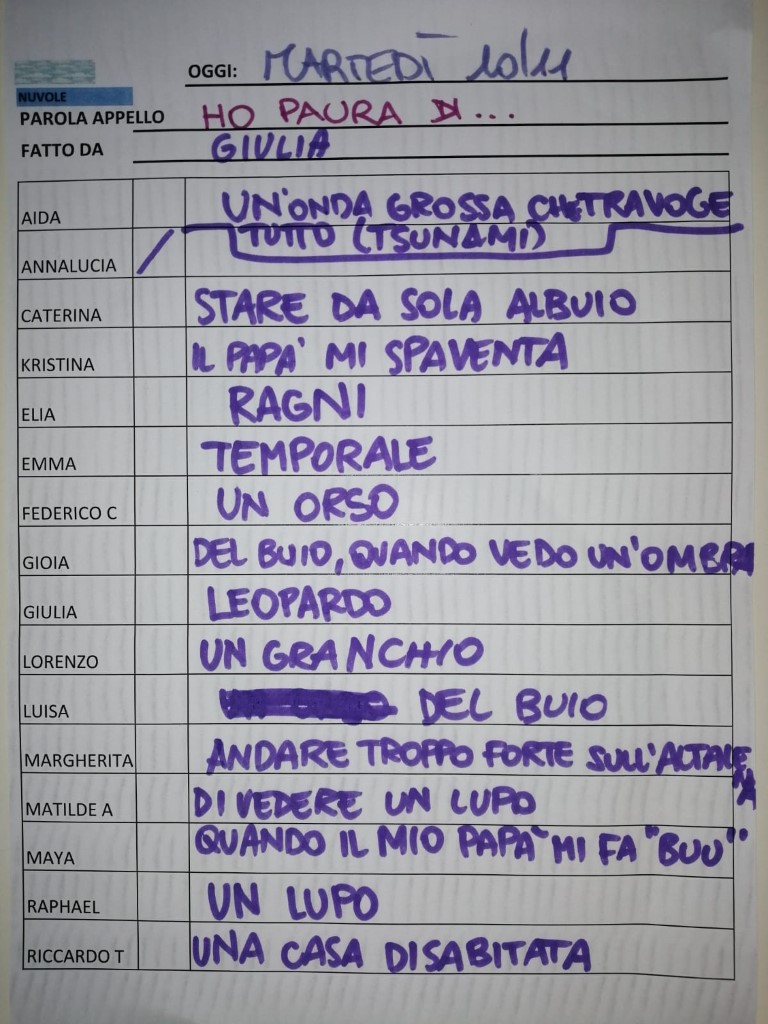 OGGI: MARTEDÌ 10/11
NUVOLE
PAROLA APPELLO HO PAURA DI...
FATTO DA GIULIA
AIDA UN'ONDA GROSSA CHE TRAVOGE
TUTTO (TSUNAMI)
ANNALUCIA /
CATERINA STARE DA SOLA AL BUIO
KRISTINA IL PAPA' MI SPAVENTA
ELIA RAGNI
EMMA TEMPORALE
FEDERICO C UN ORSO
GIOIA DEL BUIO, QUANDO VEDO UN'OMBRA
GIULIA LEOPARDO
LORENZO UN GRANCHIO
LUISA DEL BUIO
MARGHERITA ANDARE TROPPO FORTE SULL'ALTALENA
MATILDE A DI VEDERE UN LUPO
MAYA QUANDO IL MIO PAPA' MI FA "BUU"
RAPHAEL UN LUPO
RICCARDO T UNA CASA DISABITATA